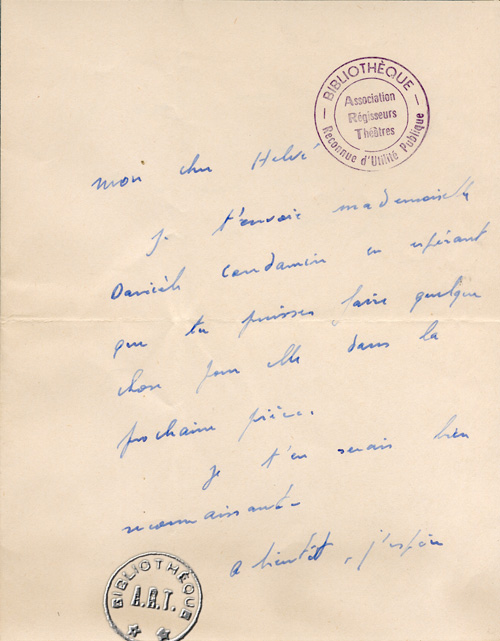 BIBLIOTHÈQUE
Association
Régisseurs
Théâtres
Reconnue d'Utilité Publique
mon cher Helvé
je t'envoie mademoiselle
Danièle Condamin en espérant
que tu puisses faire quelque
chose pour elle dans la
prochaine pièce.
je t'en serais bien
reconnaissant.
a bientôt, j'espère
BIBLIOTHÈQUE
A.R.T.